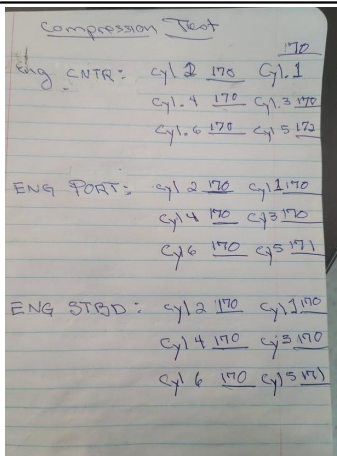 Compression Test
170
Eng CNTR: Cyl 2 170 Cyl. 1
Cyl. 4 170 Cyl. 3 170
Cyl. 6 170 Cyl 5 172
ENG PORT: Cyl 2 170 Cyl 1 170
Cyl 4 170 Cyl 3 170
Cyl 6 170 Cyl 5 171
ENG STBD: Cyl 2 170 Cyl 1 170
Cyl 4 170 Cyl 3 170
Cyl 6 170 Cyl 5 171